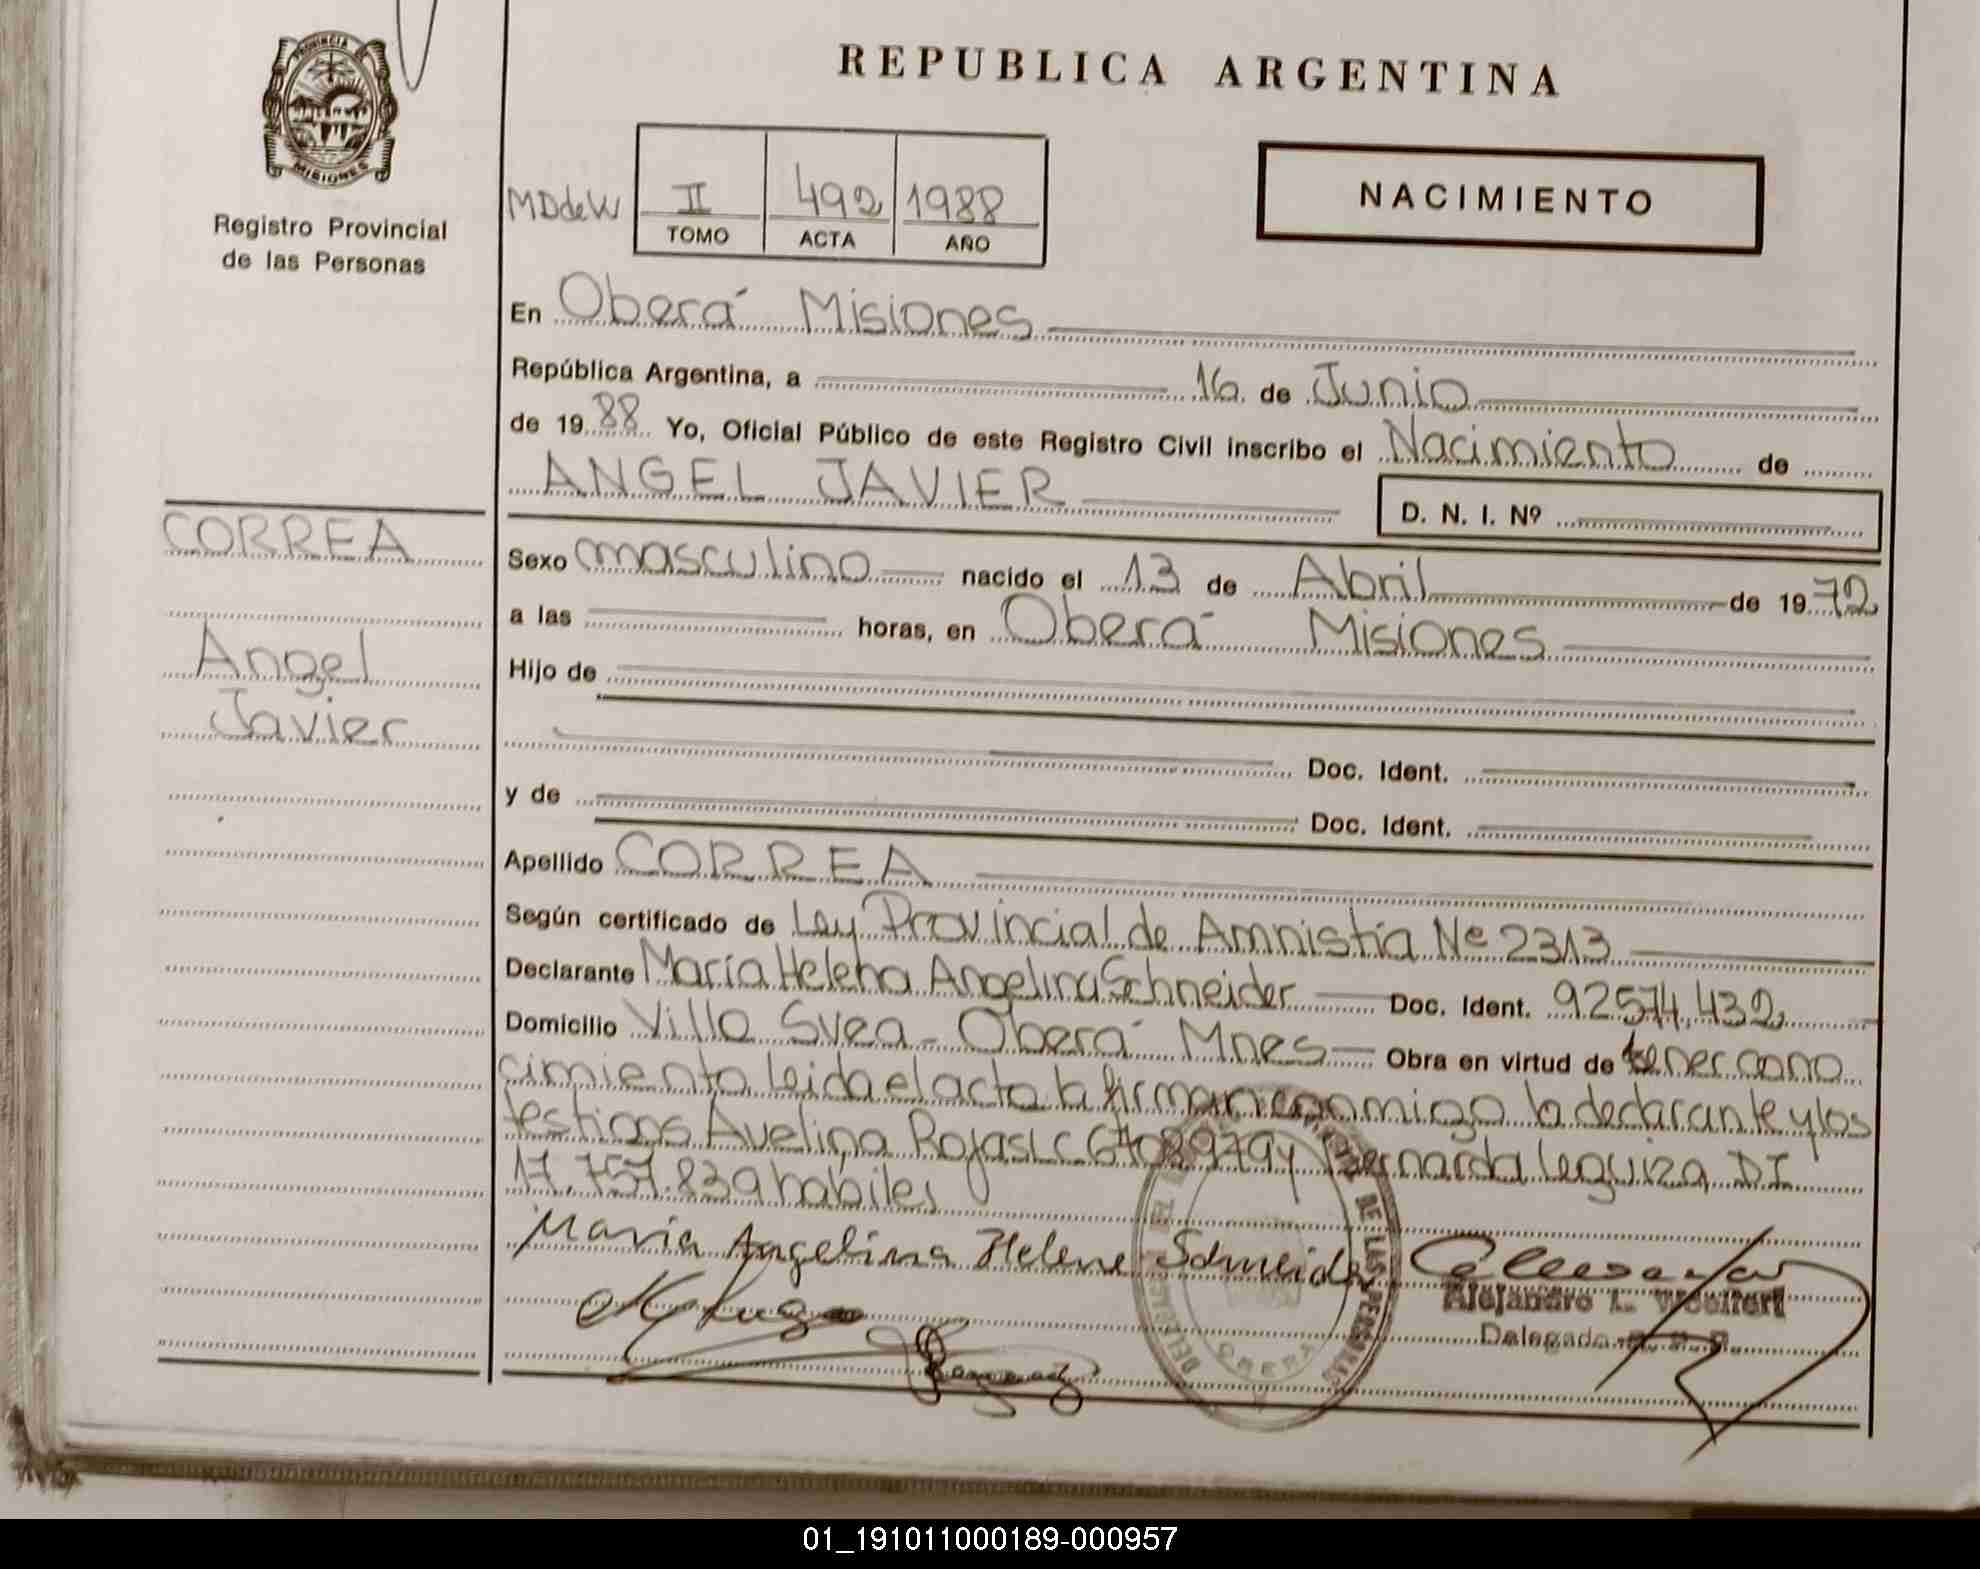 PROVINCIA
MISIONES
Registro Provincial
de las Personas
REPUBLICA ARGENTINA
MDdeW
II
492
1988
TOMO
ACTA
AÑO
NACIMIENTO
En Oberá Misiones
República Argentina, a 16 de Junio
de 19 88 Yo, Oficial Público de este Registro Civil inscribo el Nacimiento de
ANGEL JAVIER
D. N. I. Nº
CORREA
Angel
Javier
Sexo masculino nacido el 13 de Abril de 19 72
a las horas, en Oberá Misiones
Hijo de
Doc. Ident.
y de Doc. Ident.
Apellido CORREA
Según certificado de Ley Provincial de Amnistía Nº 2313
Declarante María Helena Angelina Schneider Doc. Ident. 92574.432
Domicilio Villa Svea - Oberá Mnes Obra en virtud de tener cono
cimiento leida el acta la firman conmigo la declarante y los
testigos Avelina Rojas LC 6708979 y Bernarda Leguiza DI
17.757.839 habiles
Maria Angelina Helene Schneider
Alejandro L. Woelfert
Delegado
DE LAS PERSONAS
OBERA
01_191011000189-000957